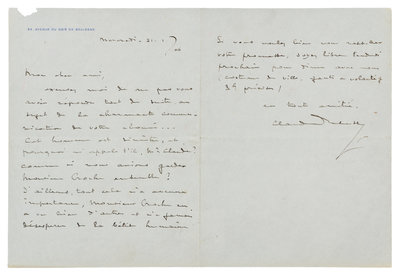 80, AVENUE DU BOIS DE BOULOGNE
Mercredi - 21.1
Mon cher ami,
excusez moi de ne pas vous
avoir répondu tout de suite, au
sujet de la charmante commu-
nication de votre
Cet homme est sinistre, et
pourquoi m'appelle-t'il, "Mr Claude"
comme si nous avions gardé
Monsieur Croche ensemble ?
D'ailleurs, tout cela n'a aucune
importance, Monsieur Croche en
a vu bien d'autres et n'a jamais
désespéré de la bêtise humaine
Si vous voulez bien vous rappeler
votre promesse, soyez libre Vendredi
prochain pour dîner avec nous
costume de ville, gants à volonté
7h précises !
en toute amitié.
Claude Debussy